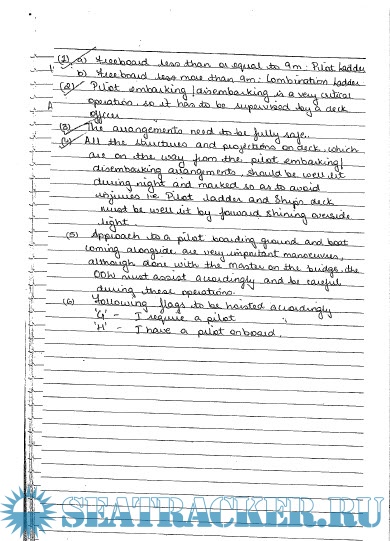 (1) a) Freeboard less than or equal to 9m: Pilot Ladder
b) Freeboard less more than 9m: Combination Ladder
(2) Pilot embarking/disembarking is a very critical
operation, so it has to be supervised by a deck
officer
(3) The arrangements need to be fully safe.
(4) All the structures and projections on deck, which
are on the way from the pilot embarking/
disembarking arrangements, should be well lit
during night and marked so as to avoid
injuries i.e. Pilot ladder and Ship's deck
must be well lit by forward shining overside
light.
(5) Approach to a pilot boarding ground and boat
coming alongside are very important manoeuvres,
although done with the Master on the bridge, the
OOW must assist accordingly and be careful
during these operations.
(6) Following flags to be hoisted accordingly
'G' - I require a pilot
'H' - I have a pilot onboard.
SEATRACKER.RU